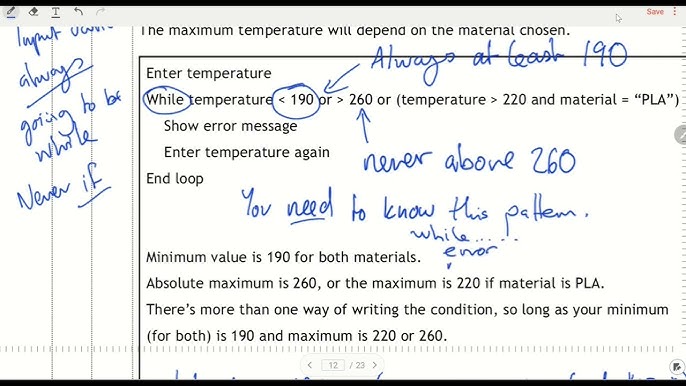 Save
The maximum temperature will depend on the material chosen.
Input valid
always
going to be
while
Never if
Always at least 190
Enter temperature
While temperature < 190 or > 260 or (temperature > 220 and material = “PLA”)
Show error message
Enter temperature again
End loop
never above 260
You need to know this pattern.
while......
error
Minimum value is 190 for both materials.
Absolute maximum is 260, or the maximum is 220 if material is PLA.
There’s more than one way of writing the condition, so long as your minimum
(for both) is 190 and maximum is 220 or 260.
12 / 23